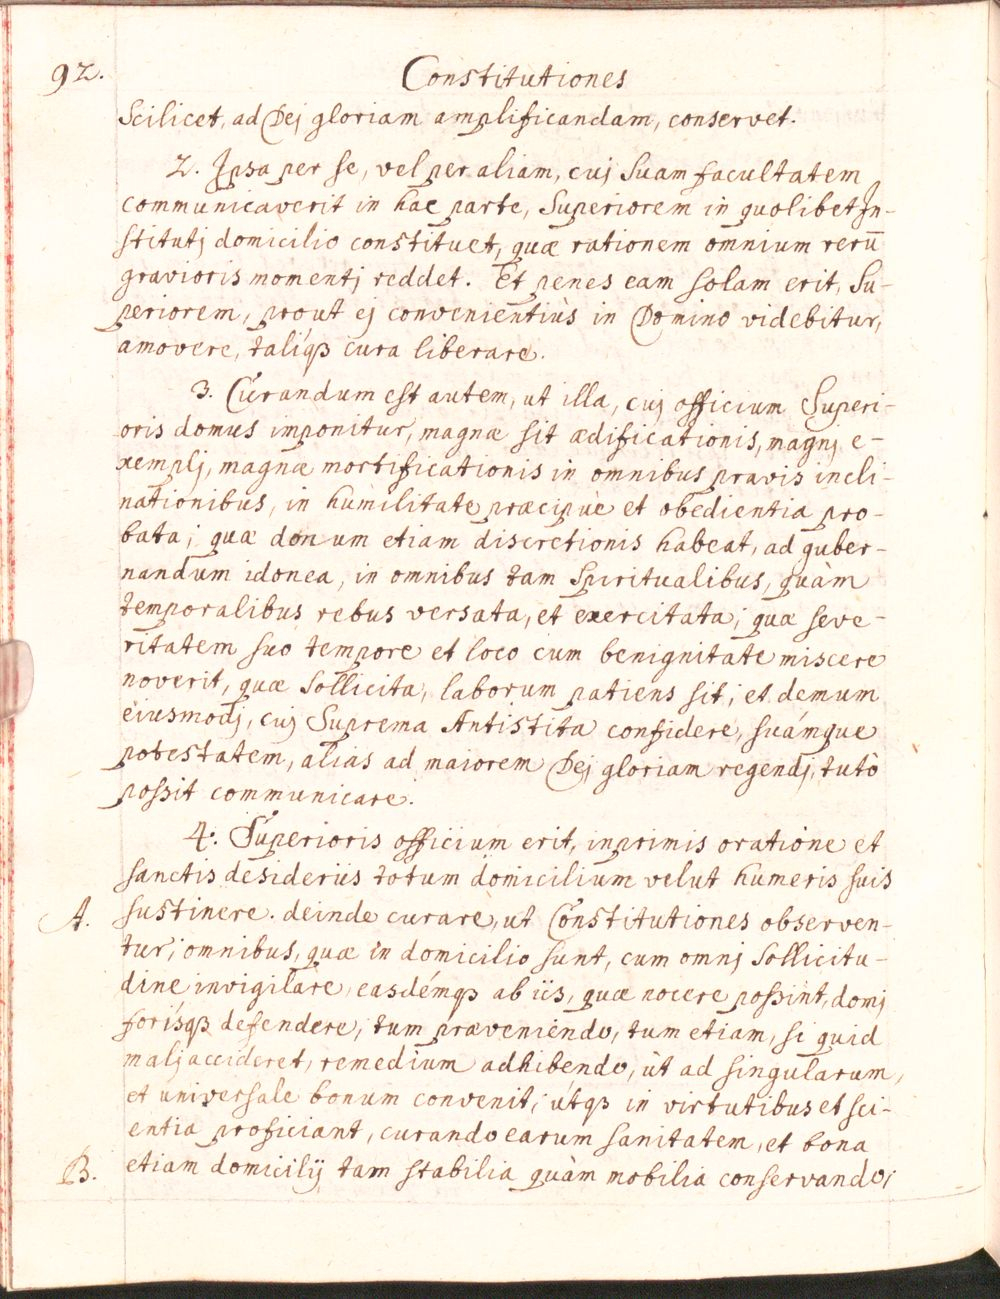 92.
Constitutiones
scilicet, ad Dej gloriam amplificandam, conservet.
2. Ipsa per se, vel per aliam, cuj suam facultatem
communicaverit in hac parte, Superiorem in quolibet In-
stitutj domicilio constituet, quæ rationem omnium rerū
gravioris momentj reddet. Et penes eam solam erit, Su-
periorem, prout ej convenientiùs in Domino videbitur,
amovere, talíqꝫ cura liberare.
3. Curandum est autem, ut illa, cuj officium Superi-
oris domus imponitur, magnæ sit ædificationis, magnj e-
xemplj, magnæ mortificationis in omnibus pravis incli-
nationibus, in humilitate præcipuè et obedientia pro-
bata; quæ donum etiam discretionis habeat, ad guber-
nandum idonea, in omnibus tam Spiritualibus, quàm
temporalibus rebus versata, et exercitata; quæ seve-
ritatem suo tempore et loco cum benignitate miscere
noverit, quæ sollicita, laborum patiens sit; et demum
eiusmodj, cuj Suprema Antistita confidere, suámque
potestatem, aliàs ad maiorem Dej gloriam regendj, tutò
possit communicare.
4. Superioris officium erit, inprimis oratione et
sanctis desideriis totum domicilium velut humeris suis
A. sustinere. deinde curare, ut Constitutiones observen-
tur; omnibus, quæ in domicilio sunt, cum omnj sollicitu-
dine invigilare, easdémqꝫ ab iis, quæ nocere possint, domj
forísqꝫ defendere, tum præveniendo, tum etiam, si quid
malj accideret, remedium adhibendo, ùt ad singularum,
et universale bonum convenit; útqꝫ in virtutibus et sci-
entia proficiant, curando earum sanitatem, et bona
B. etiam domicilij tam stabilia quàm mobilia conservando;